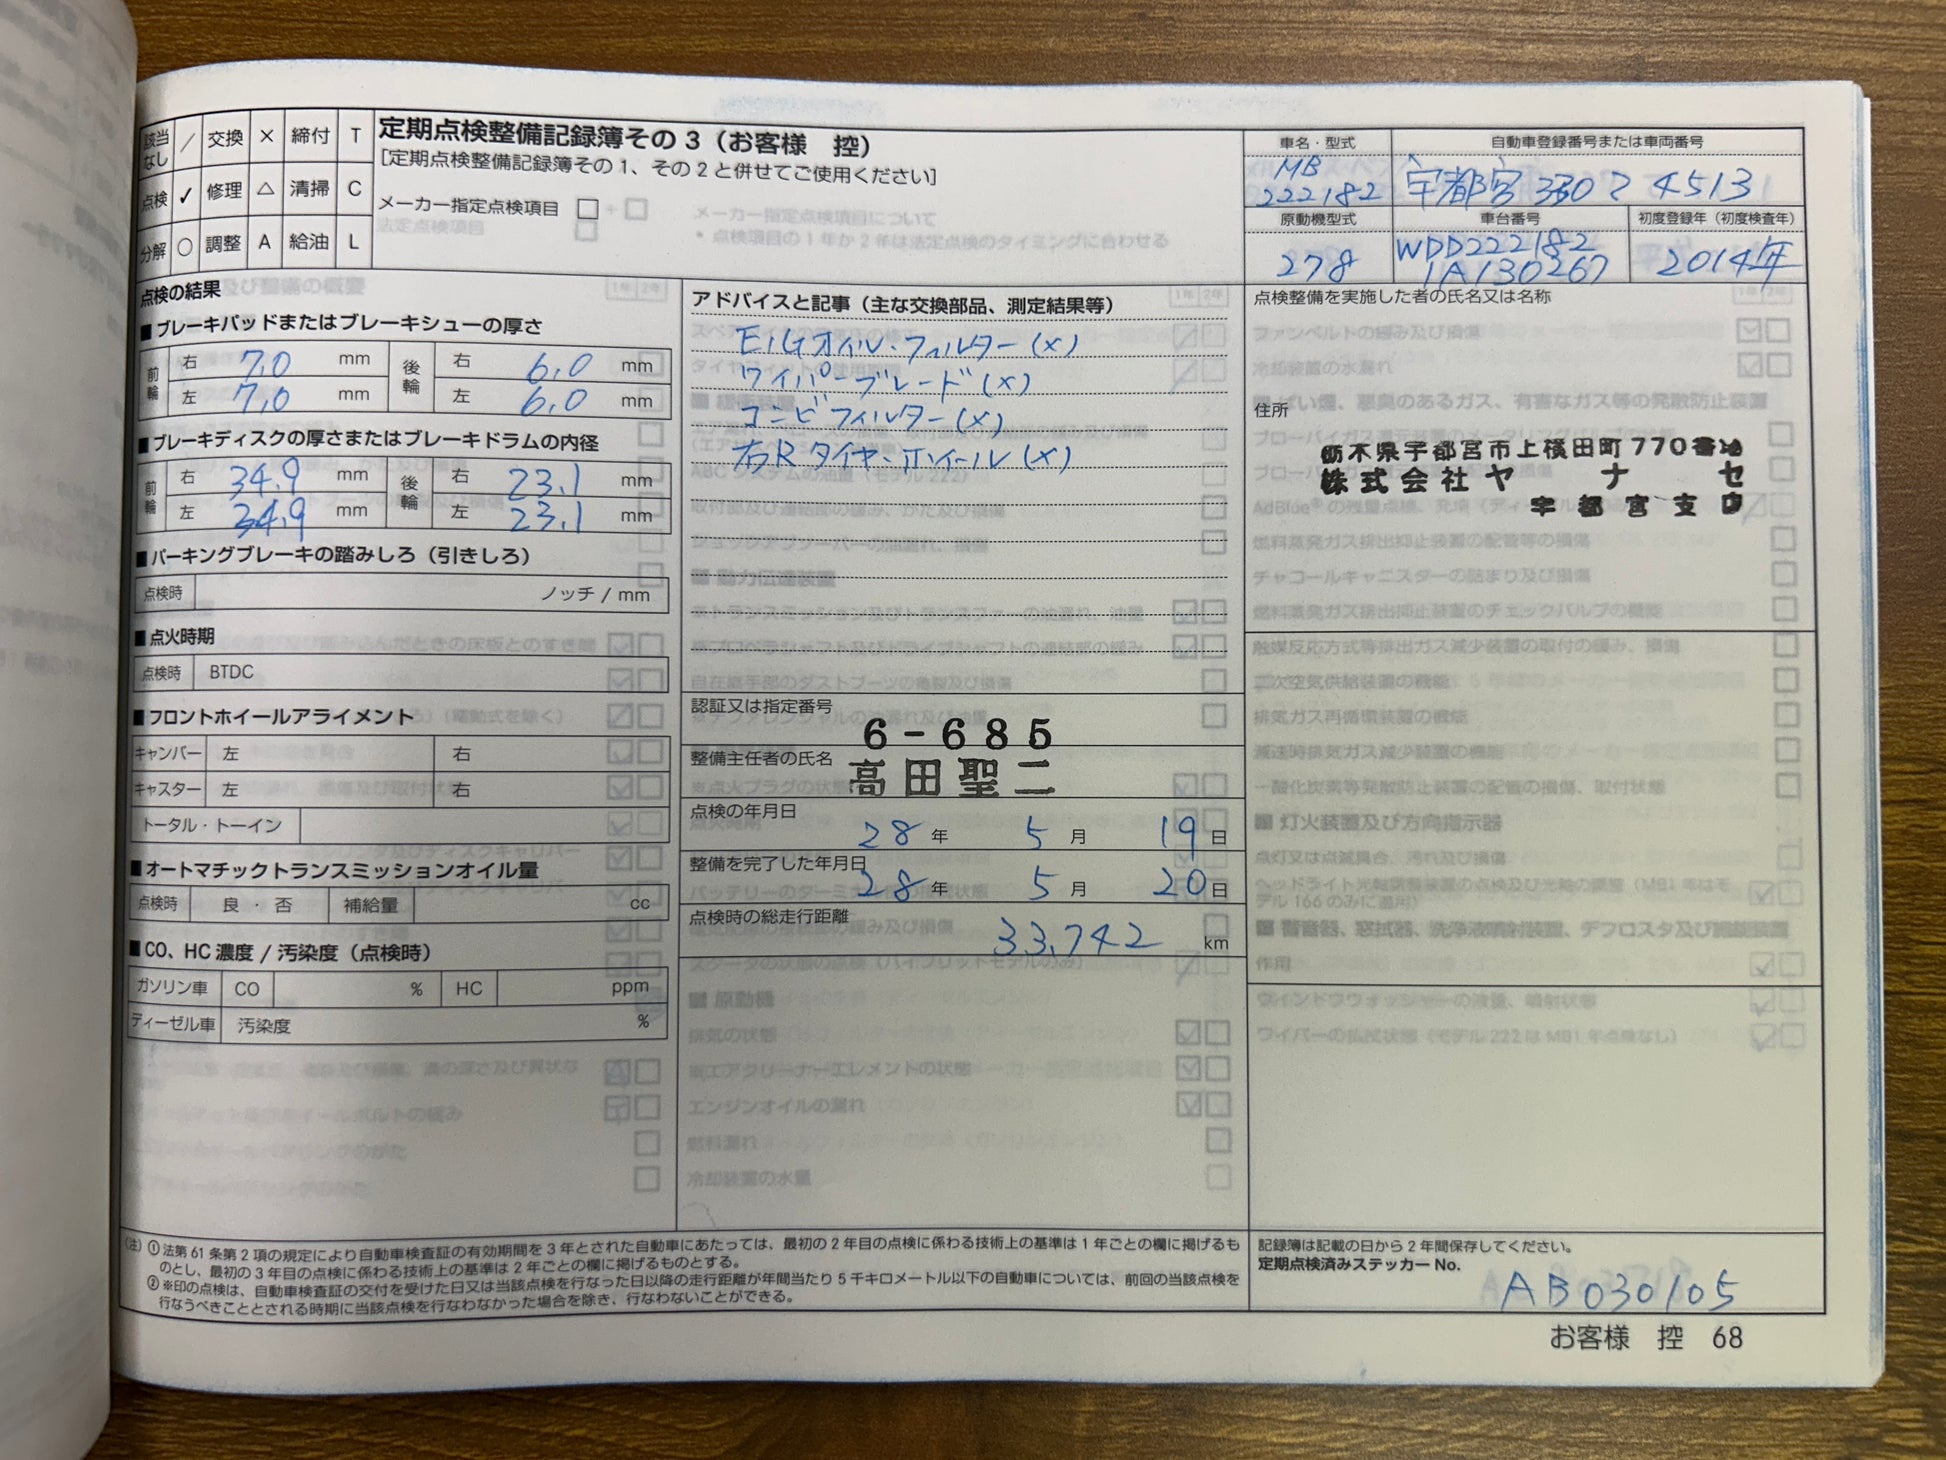 該当なし ／ 交換 × 締付 T
点検 ✓ 修理 △ 清掃 C
分解 ○ 調整 A 給油 L
定期点検整備記録簿その3（お客様　控）
［定期点検整備記録簿その1、その2と併せてご使用ください］
メーカー指定点検項目 □
車名・型式
MB
222182
自動車登録番号または車両番号
宇都宮 330 て 4513
原動機型式
278
車台番号
WDD222182
1A130267
初度登録年（初度検査年）
2014年
点検の結果
■ ブレーキパッドまたはブレーキシューの厚さ
前輪 右 7.0 mm 後輪 右 6.0 mm
左 7.0 mm 左 6.0 mm
■ ブレーキディスクの厚さまたはブレーキドラムの内径
前輪 右 34.9 mm 後輪 右 23.1 mm
左 34.9 mm 左 23.1 mm
■ パーキングブレーキの踏みしろ（引きしろ）
点検時 ノッチ / mm
■ 点火時期
点検時 BTDC
■ フロントホイールアライメント
キャンバー 左 右
キャスター 左 右
トータル・トーイン
■ オートマチックトランスミッションオイル量
点検時 良・否 補給量 cc
■ CO、HC 濃度 / 汚染度（点検時）
ガソリン車 CO % HC ppm
ディーゼル車 汚染度 %
アドバイスと記事（主な交換部品、測定結果等）
E/Gオイル・フィルター(×)
ワイパーブレード(×)
コンビフィルター(×)
右Rタイヤ・ホイール(×)
認証又は指定番号
6-685
整備主任者の氏名
高田聖二
点検の年月日
28年 5月 19日
整備を完了した年月日
28年 5月 20日
点検時の総走行距離
33,742 km
点検整備を実施した者の氏名又は名称
住所
栃木県宇都宮市上横田町770番地
株式会社ヤナセ
宇都宮支店
（注）① 法第61条第2項の規定により自動車検査証の有効期間を3年とされた自動車にあたっては、最初の2年目の点検に係わる技術上の基準は1年ごとの欄に掲げるも
のとし、最初の3年目の点検に係わる技術上の基準は2年ごとの欄に掲げるものとする。
② ※印の点検は、自動車検査証の交付を受けた日又は当該点検を行なった日以降の走行距離が年間当たり5千キロメートル以下の自動車については、前回の当該点検を
行なうべきこととされる時期に当該点検を行なわなかった場合を除き、行なわないことができる。
記録簿は記載の日から2年間保存してください。
定期点検済みステッカーNo.
AB030105
お客様　控　68